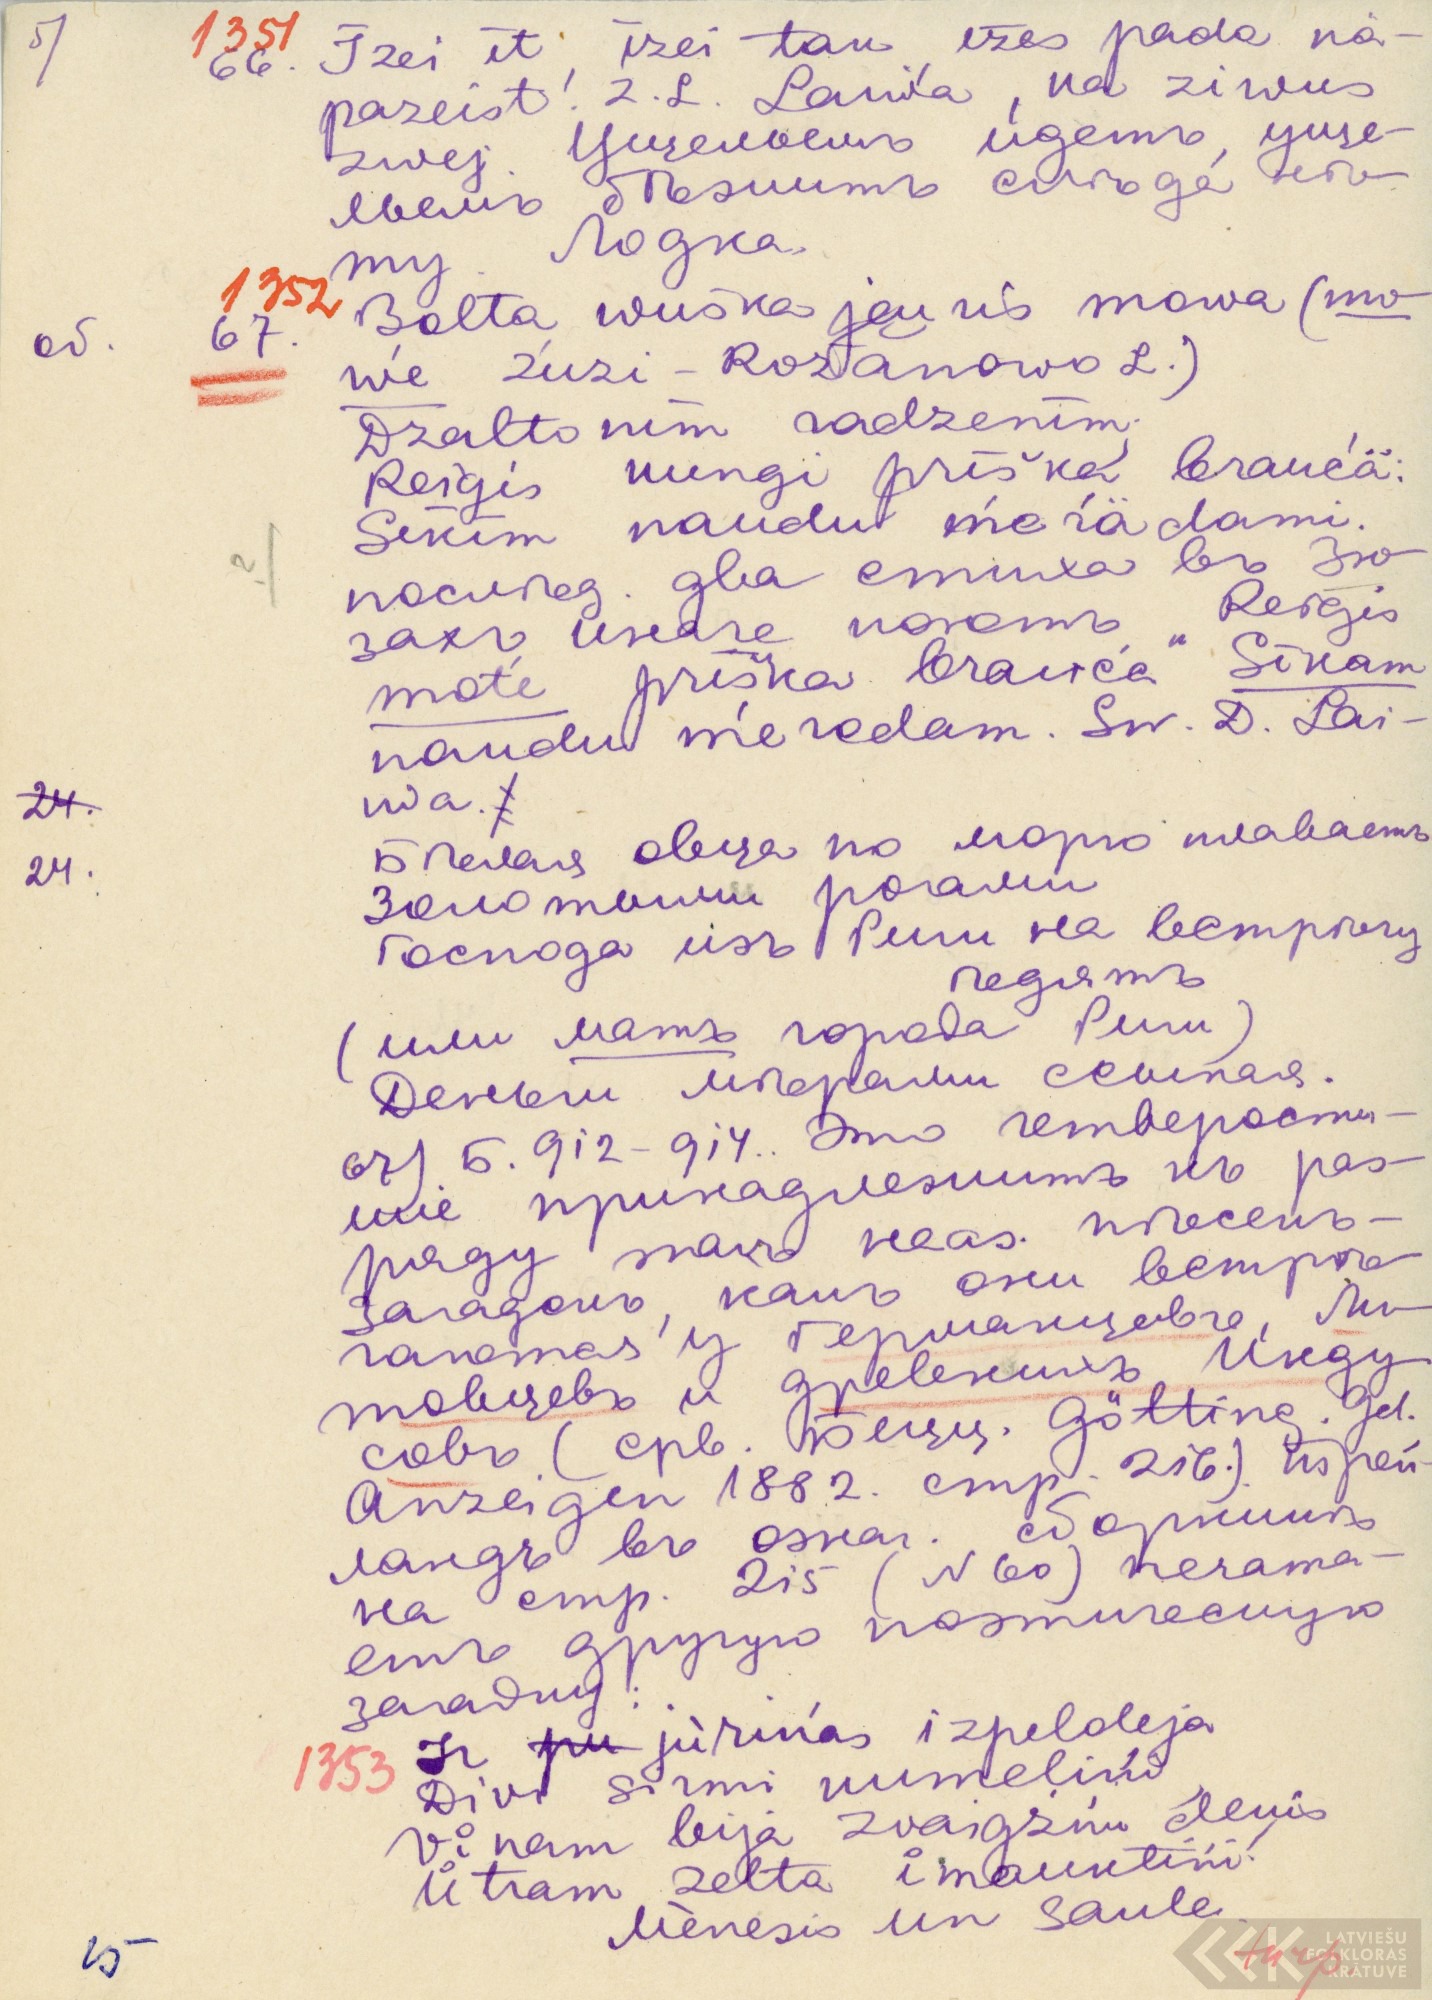 5)
1351
66. Īzei īt, īzei tau, īzes pada nā-
pazeist! Z.L. Laiwa, ka ziwus
zwej. Ущельемъ идетъ, уще-
льемъ бѣжитъ слѣда нѣ-
ту. Лодка.
1352
об. 67. Bolta wuška jeuris mowa (mo-
we Zuzi - Rozanowo L.)
Dzaltonim radzenim.
Reigis kungi priška brauca:
Sikim naudu meradami.
послѣд. два стиха въ Зю-
захъ иначе поютъ „Reigis
mote priška brauca" Sikam
naudu meredam. Sw. D. Lai-
wa.
24.
24.
Бѣлая овца по морю плаваетъ
Золотыми рогами
Господа изъ Риги на встрѣчу
ѣдятъ
(или мать города Риги)
Деньги мѣрами сыпая.
67) Б. 912-914. Это четверости-
шіе принадлежитъ къ раз-
ряду такъ наз. пѣсень-
загадокъ, какъ они встрѣ-
чаются у Германцевъ, Ли-
товцевъ и древнихъ Инду
совъ (срв. Бецц. Götting. Gel.
Anzeigen 1882. стр. 216.) Шпрей-
ландъ въ означ. сборникѣ
на стр. 215 (N 60) печата-
етъ другую поэтическую
загадку:
1353 Iz jūriņas izpeldeja
Divi sirmi kumeliņi
Vinam bija zvaigžņu deķis
Utram zelta imauktiņi.
Mēnesis un saule.
15
turp.
LATVIEŠU
FOLKLORAS
KRĀTUVE